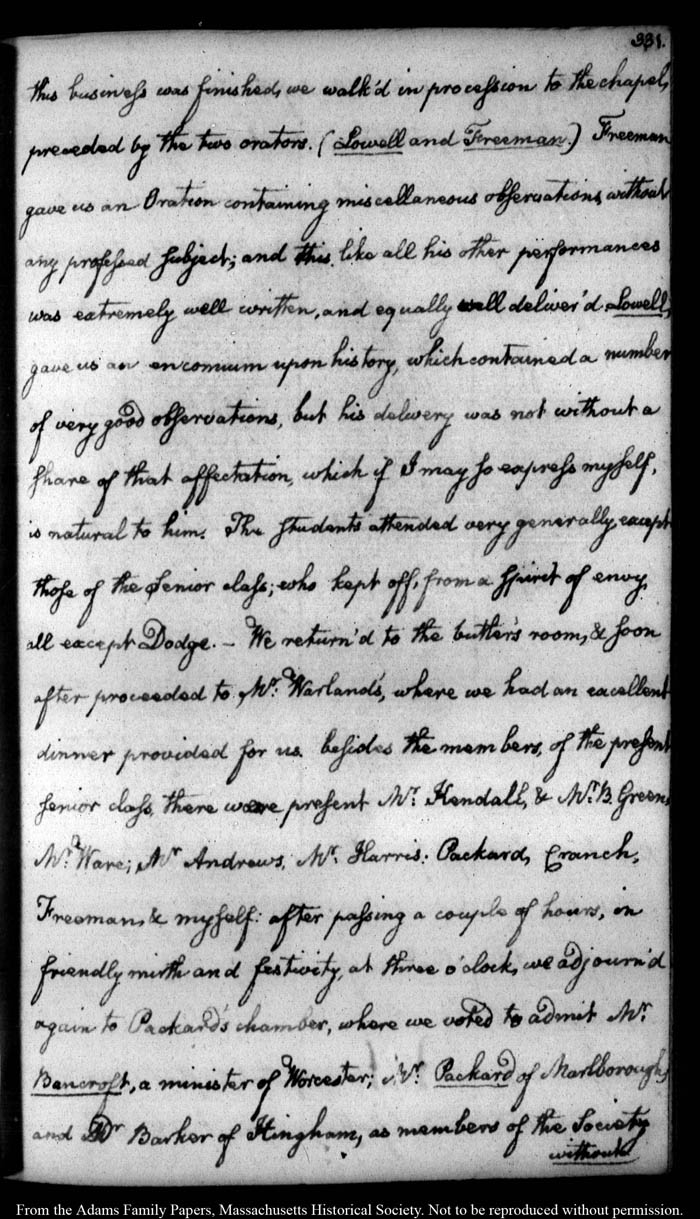 331.
this business was finished, we walk'd in procession to the chapel,
preceded by the two orators. (Lowell and Freeman.) Freeman
gave us an Oration containing miscellaneous observations without
any professed subject; and this, like all his other performances
was extremely well written, and equally well deliver'd Lowell,
gave us an encomium upon history, which contained a number
of very good observations, but his delivery was not without a
share of that affectation, which if I may so express myself,
is natural to him. The students attended very generally, except
those of the Senior class; who kept off, from a spirit of envy,
all except Dodge. — We return'd to the butler's room, & soon
after proceeded to Mr. Warland's, where we had an excellent
dinner provided for us. besides the members, of the present
senior class, there were present Mr. Kendall, & Mr. B. Green,
Mr. Ware; Mr. Andrews, Mr. Harris. Packard, Cranch,
Freeman, & myself: after passing a couple of hours, in
friendly mirth and festivity, at three o'clock, we adjourn'd
again to Packard's chamber, where we voted to admit Mr.
Bancroft, a minister of Worcester; Mr. Packard of Marlborough,
and Dr Barker of Hingham, as members of the Society
without
From the Adams Family Papers, Massachusetts Historical Society. Not to be reproduced without permission.